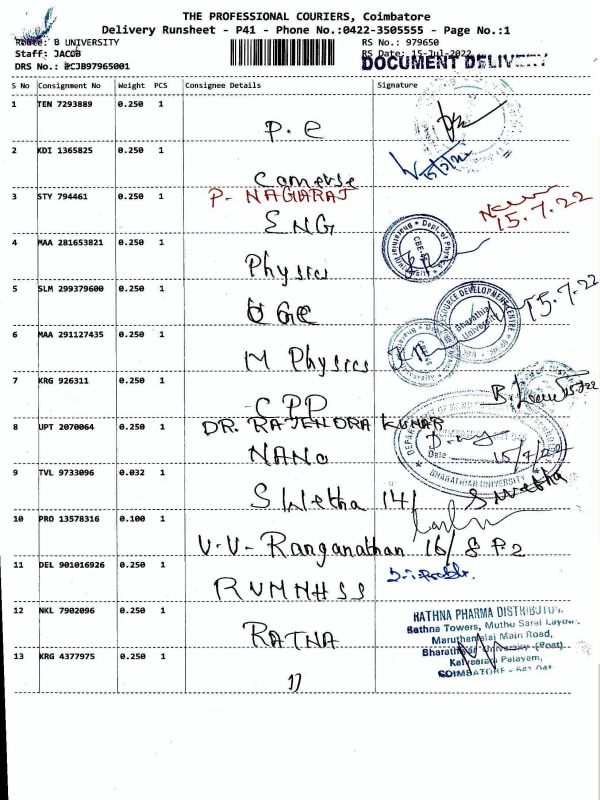 THE PROFESSIONAL COURIERS, Coimbatore
Delivery Runsheet - P41 - Phone No.:0422-3505555 - Page No.:1
Route: B UNIVERSITY
RS No.: 979650
Staff: JACOB
RS Date: 15-Jul-2022
DRS No.: PCJB97965001
DOCUMENT DELIVERY
S No Consignment No Weight PCS Consignee Details Signature
1 TEN 7293889 0.250 1
P.C
2 KDI 1365825 0.250 1
3 STY 794461 0.250 1 P. NAGARAJ
15.7.22
ENG
4 MAA 281653821 0.250 1
Physics
5 SLM 299379600 0.250 1
15.7.22
6 MAA 291127435 0.250 1
M Physics
7 KRG 926311 0.250 1
CPP
8 UPT 2070064 0.250 1 DR. RAJENDRA KUMAR
NANO
Date 15/7/22
BHARATHIAR UNIVERSITY
9 TVL 9733096 0.032 1
Swetha 141 Swetha
10 PRO 13578316 0.100 1
V.V. Ranganathan 16/
11 DEL 901016926 0.250 1
RVMNHSS
12 NKL 7902096 0.250 1
RATNA
RATHNA PHARMA DISTRIBUTOR
Rathna Towers, Muthu Sarai Layout,
Maruthamalai Main Road,
Bharathiar University (Post)
Kalveeram Palayam,
COIMBATORE - 641 046
13 KRG 4377975 0.250 1
17